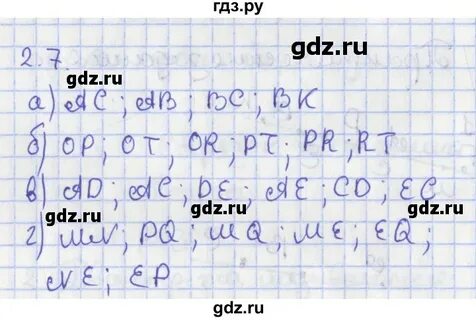 гдз.ру
2.7.
gdz.ru
gdz.ru
а) AC; AB; BC; BK
gdz.ru
б) OP; OT; OR; PT; PR; RT
gdz.ru
в) AD; AC; DE; AE; CD; EC
gdz.ru
г) MN; PQ; MQ; ME; EQ;
NE; EP
gdz.ru
gdz.ru